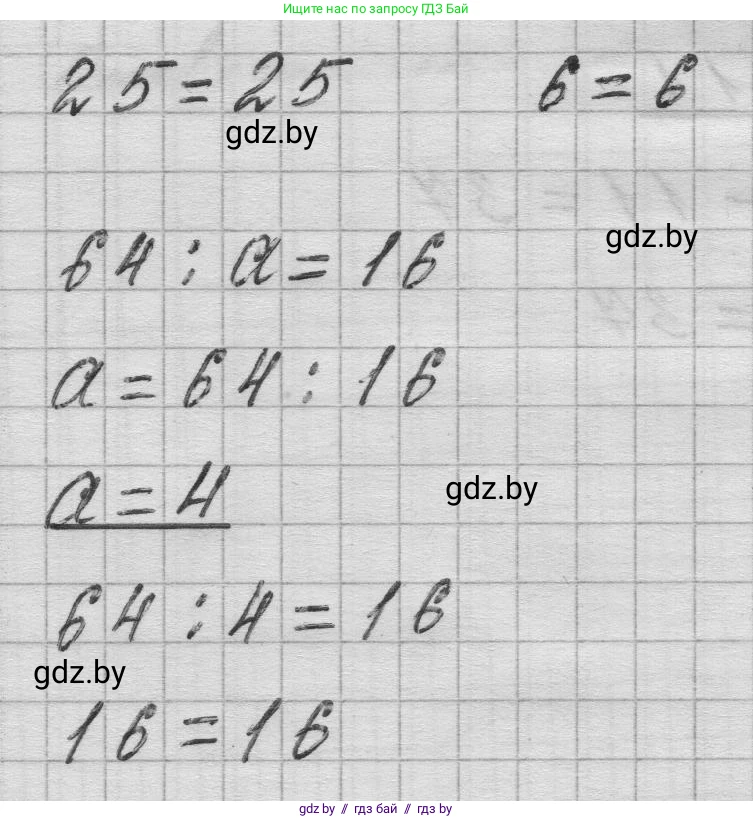 Ищите нас по запросу ГДЗ Бай
25 = 25 6 = 6
gdz.by
64 : a = 16
gdz.by
a = 64 : 16
a = 4
gdz.by
64 : 4 = 16
gdz.by
16 = 16
gdz.by // гдз бай // гдз by